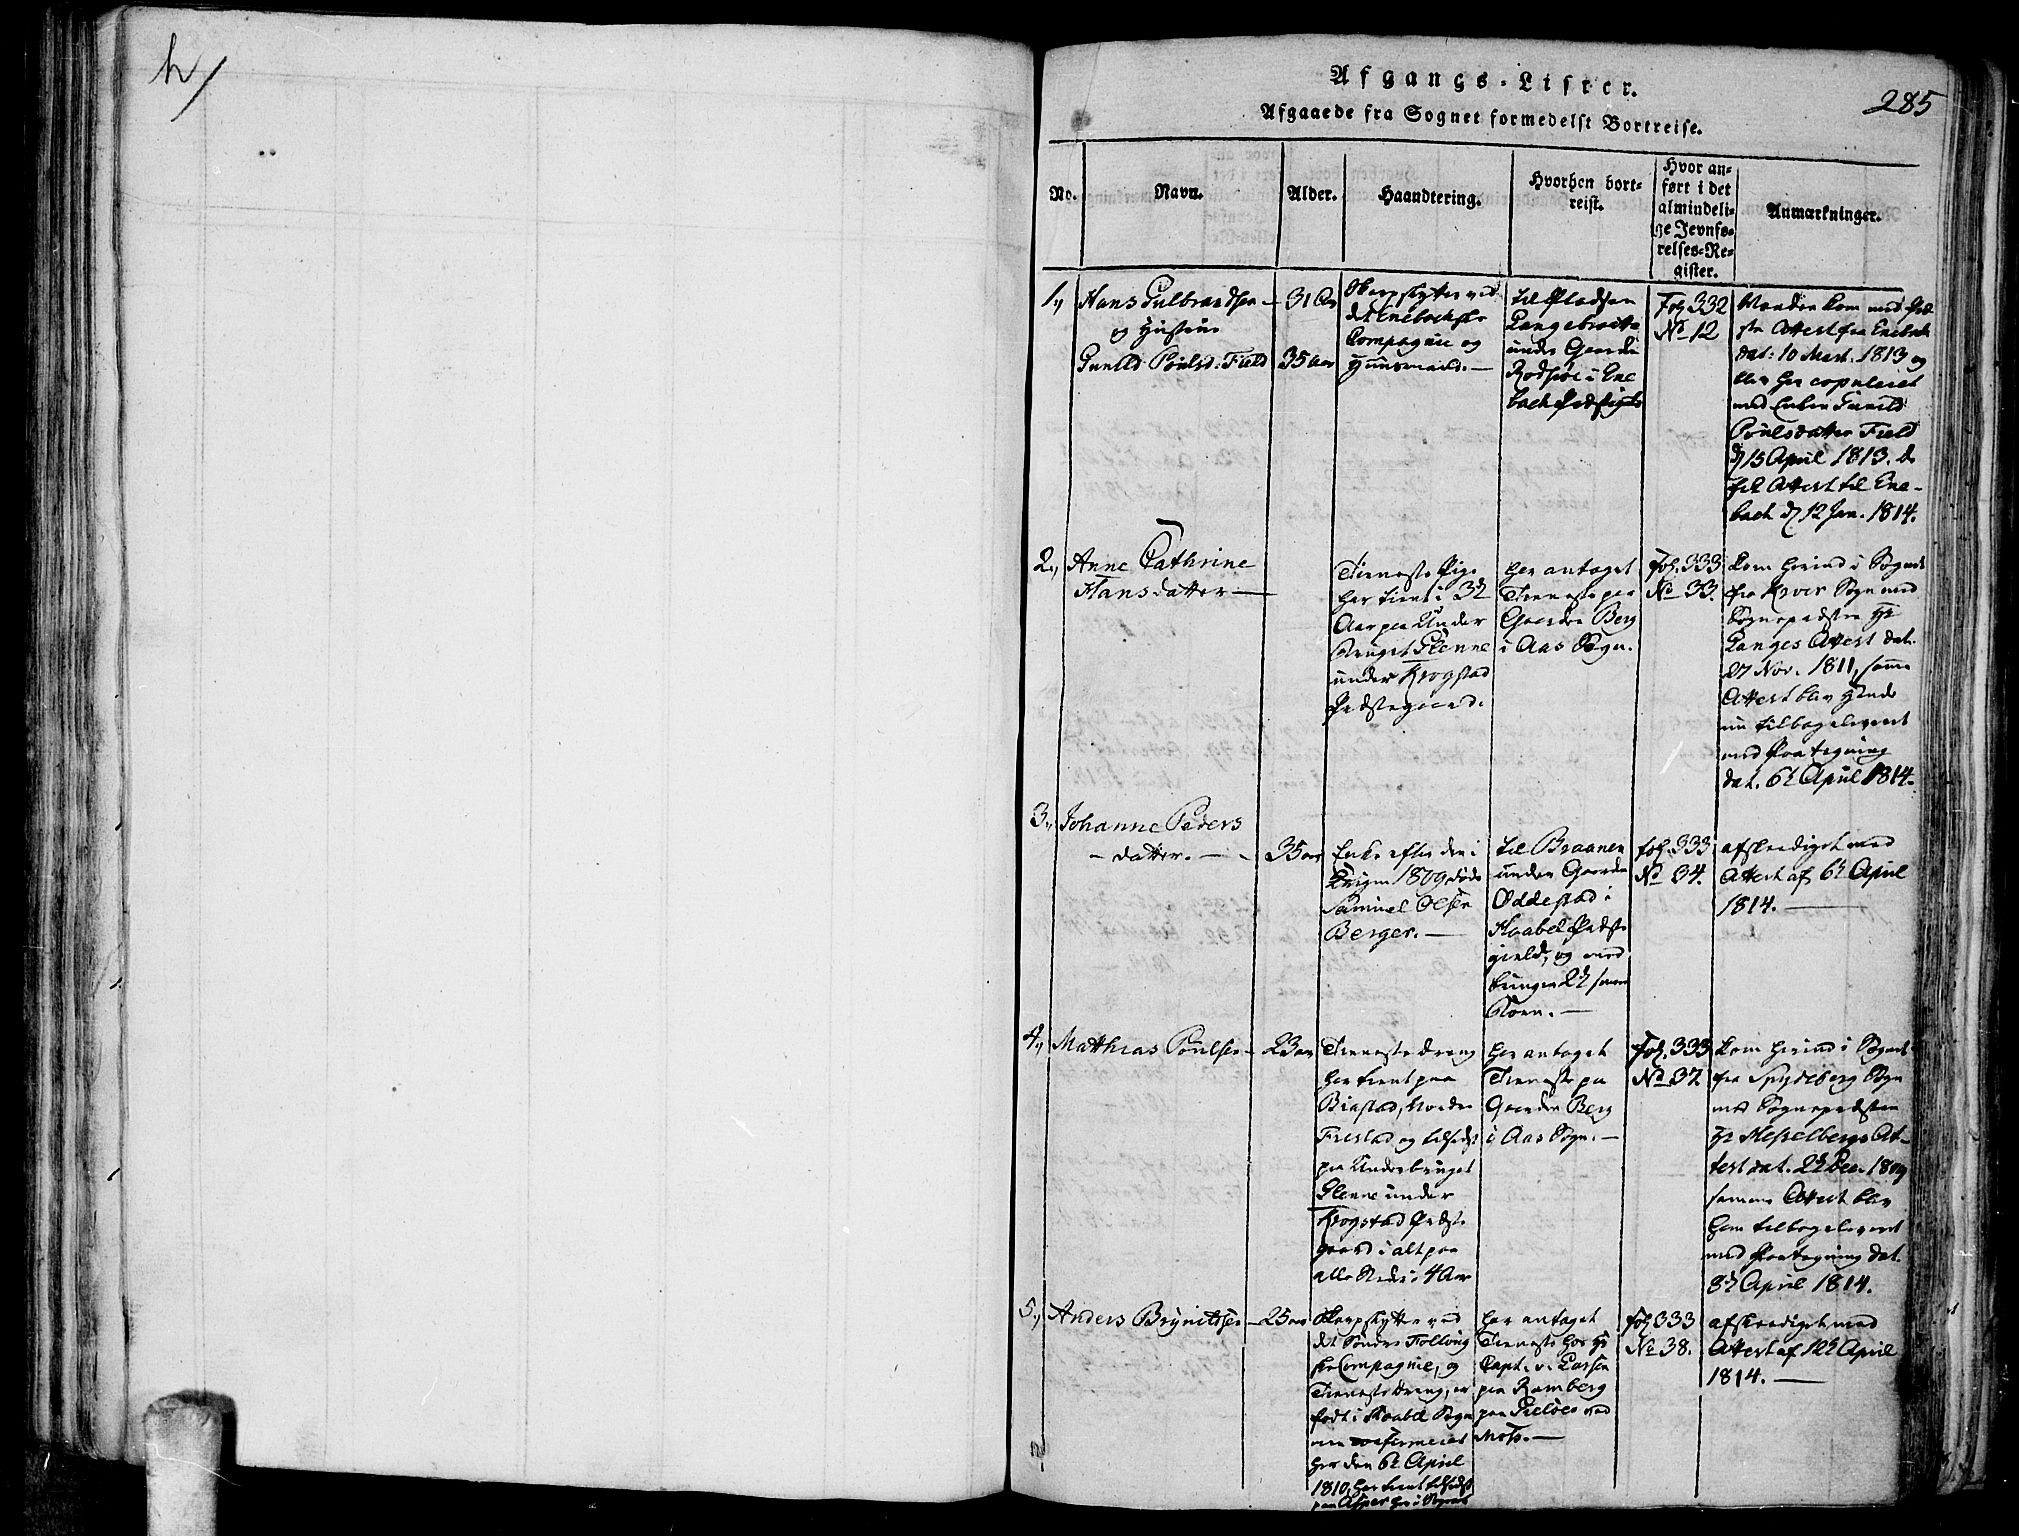 h/
Afgangs-Lister.
285
Afgaaede fra Sognet formedelst Bortreise.
No.
Navn.
Alder.
Haandtering.
Hvorhen bort-
reist.
Hvor an-
ført i det
almindeli-
ge Jevnfø-
relses-Re-
gister.
Anmærkninger.
1.,
Hans Gulbrandsen —
og Hustrue
Gunild Poulsd: Field
31 Aar
35 Aar
Skarpskytter ved
det Enebachske
Compagnie og
Huusmand. —
til Pladsen
Langebraate
under Gaarden
i Ene
bach Præstegield
Fol. 332
No 12
Manden kom med Præ
ste Attest fra Enebach
dat: 10 Mart. 1813 og
blev her copuleret
med Enken Gunild
Poulsdatter Field
d 15 April 1813. de
fik Attest til Ene-
bach d 12 Jan. 1814.
2.,
Anne Cathrine
Hansdatter —
Tieneste Pige
har tient i 3½
Aar paa Under
bruget Glenne
under Krogstad
Præstegaard.
har antaget
Tieneste paa
Gaarden Berg
i Aas Sogn.
Fol. 333
No 33.
kom herind i Sognet
fra Kroer Sogn med
Sognepræsten Hr
Langes Attest dat.
27 Nov. 1811, samme
Attest blev hende
nu tilbageleveret
med Paategning
dat. 6t April 1814.
3.,
Johanne Peders
- datter. —
35 aar
Enke efter den i
Krigen 1809 døde
Samuel Olsen
Berger. —
til Braanen
under Gaarden
Oddestad i
Haabel Præste
gield, og med
bringer 2
Børn. —
fol. 333
No 34.
afskediget med
Attest af 6t April
1814. —
4.,
Matthias Poulsen —
23 aar
Tieneste dreng
har tient paa
Biastad, Nordre
Frestad og tilsidst
paa Underbruget
Glenne under
Krogstad Præste
gaard i alt paa
alle Steder i 4 Aar
har antaget
Tieneste paa
Gaarden Berg
i Aas Sogn. —
fol. 333
No 37
kom herind i Sognet
fra Spydeberg Sogn
med Sognepræsten
Hr Hesselbergs At-
test dat. 2 Dec. 1809
samme Attest blev
ham tilbageleveret
med Paategning dat.
8d April 1814.
5.,
Anders Brynildsen
— 25 aar
Skarpskytter ved
det Søndre Folloug
ske Compagnie, og
Tieneste dreng, er
født i Haabel Sogn
men confirmeret
her den 6t April
1810, har tient tilsidst
paa Asper her i Sognet
har antaget
Tieneste hos Hr
Capt. v. Larsen
paa Ramberg
paa Gieløe ved
Moss. —
fol. 333
No 38.
afskediget med
Attest af 12t April
1814. —